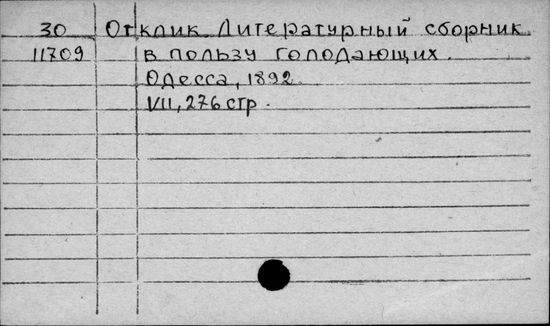 30 Отклик Литературный сборник
11709 в пользу голодающих.
Одесса, 1892.
VII, 276 стр.